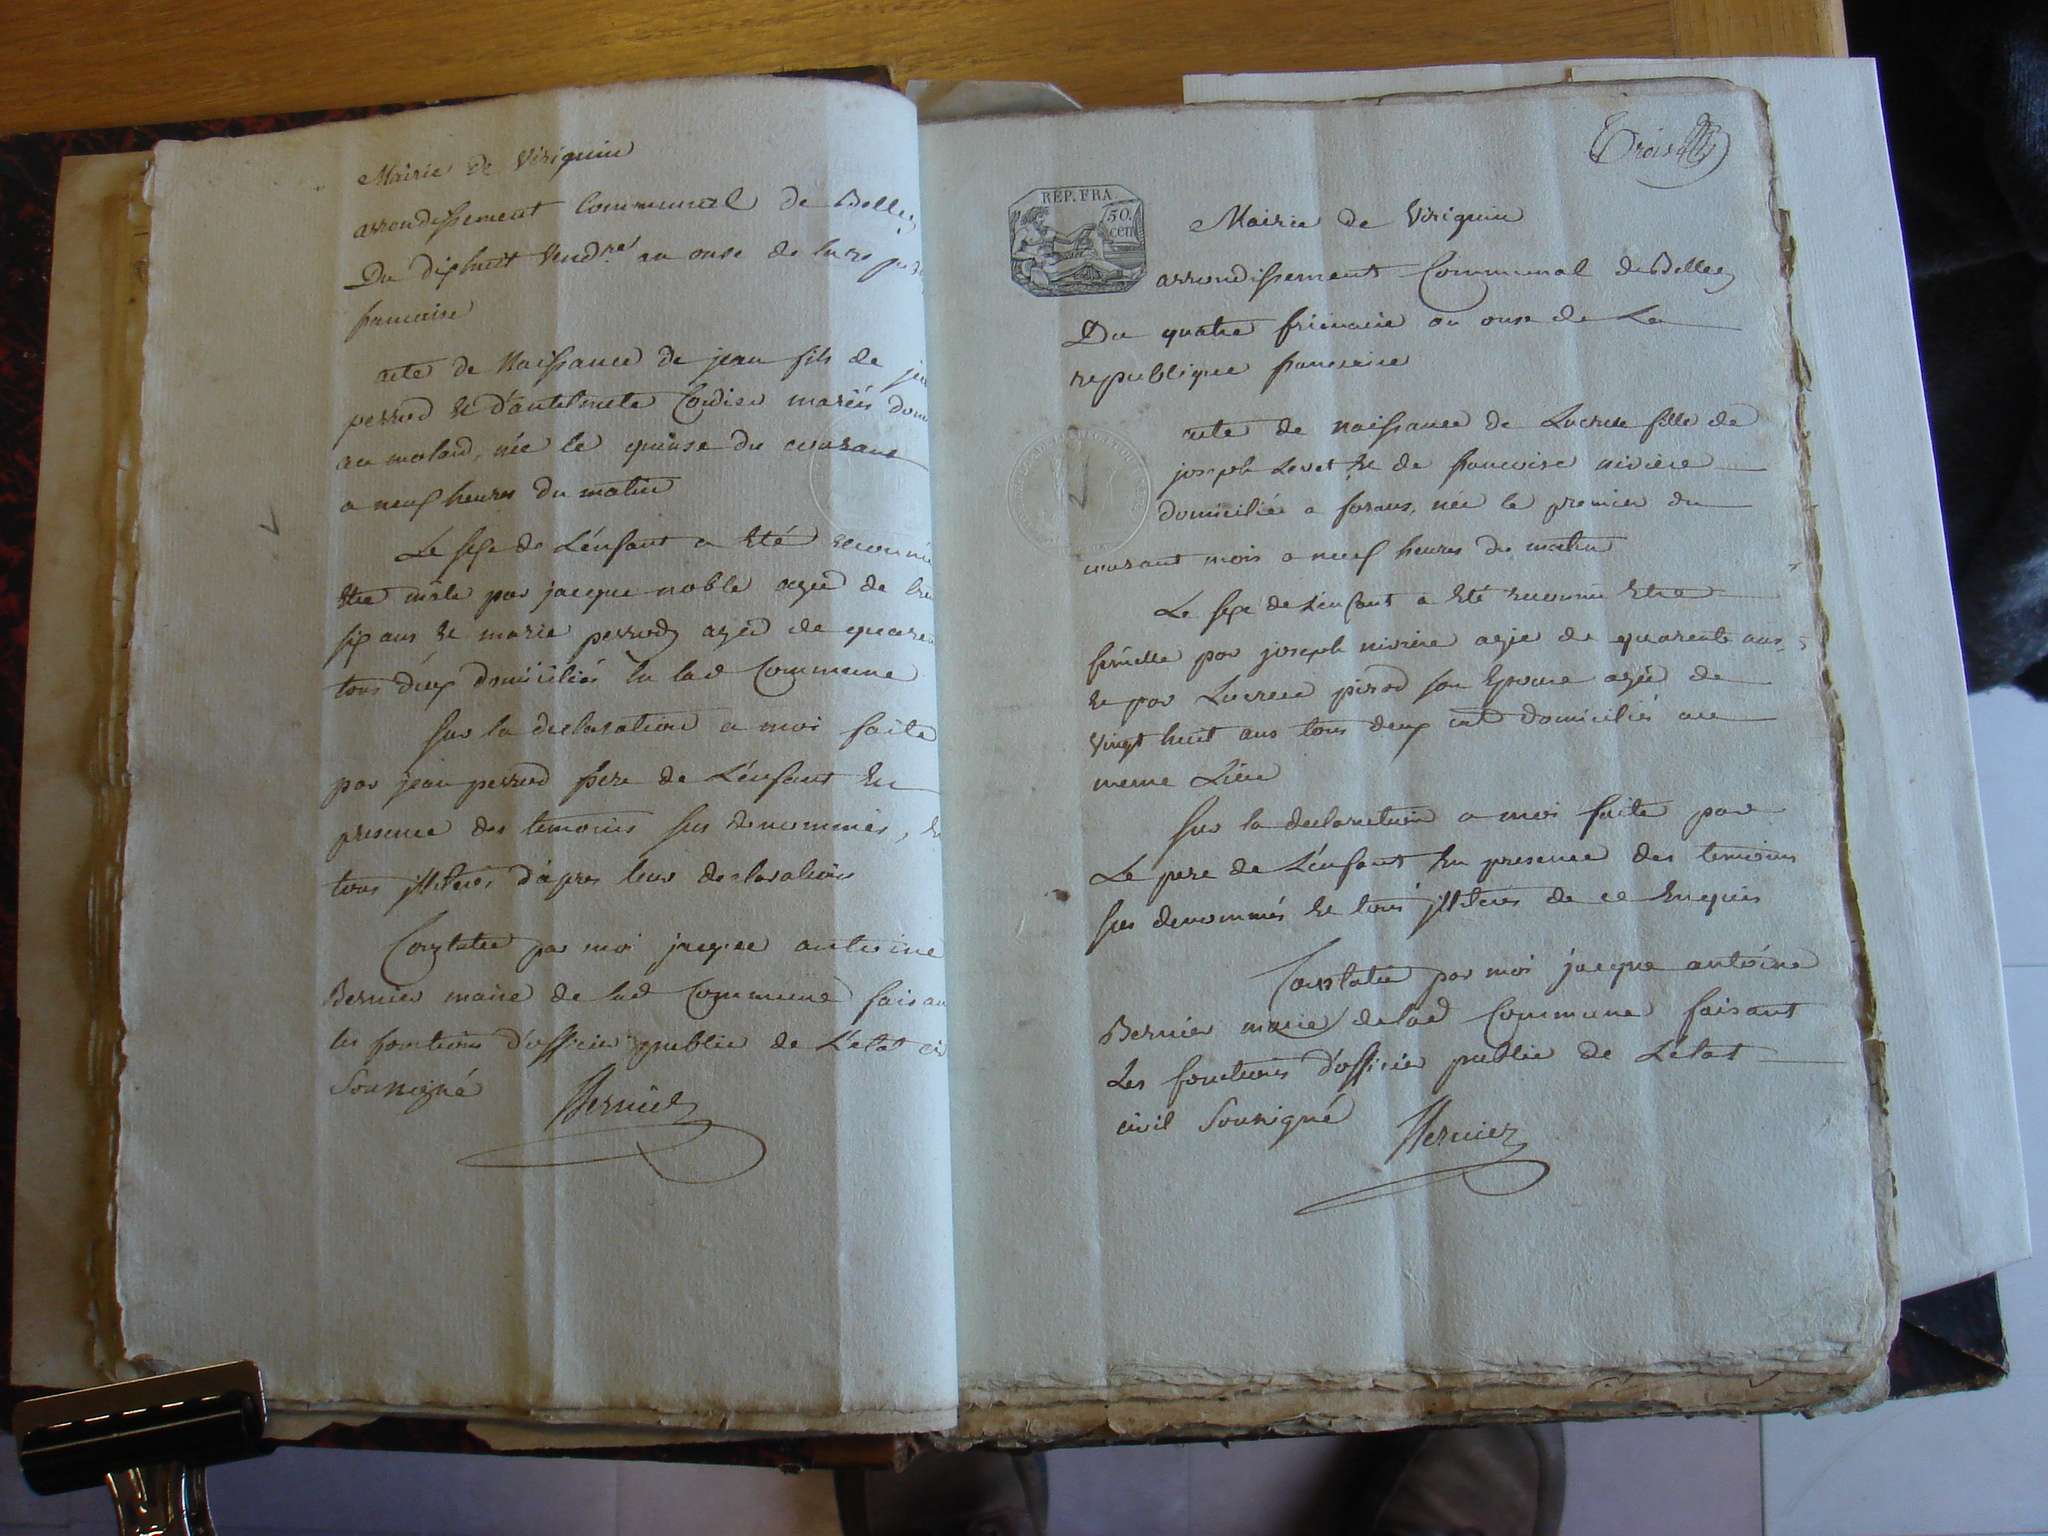 Mairie de Virignin
arrondissement Communal de Belley
Du dixhuit Vend.re an onze de la re
francaise
acte de Naissance de jean fils de
perrod et d'antelmete Cordier mariés
au molard, née le quinse du courant
a neuf heures du matin
Le sexe de L'enfant a eté reconnu
etre mâle par jacque noble agée de
six ans et marie perrod agée de
tous deux domiciliés en lad Commune
sur la declaration a moi faite
par jean perrod pere de L'enfant en
presence des temoins sus denommés, et
tous illiterés d'apres leur declaration
Constatée par moi jacque antoine
Bernier maire de lad Commune
les fonctions d'officier public de L'etat
Sousigné Bernier
Trois
REP. FRA.
50.
cen
Mairie de Virignin
arrondissement Communal de Belley
Du quatre frimaire an onze de La
republique francaise
acte de naissance de Lucresse fille de
joseph Levet et de francoise nivière
domiciliée a forans, née le premier du
courant mois a neuf heures du matin
Le sexe de L'enfant a eté reconnu etre
femelle par joseph nivière agée de quarente ans,
et par Lucrece perrod son Epouse agée de
vingt huit ans tous deux domiciliés au
meme Lieu
sur la declaration a moi faite par
Le pere de L'enfant en presence des temoins
sus denommés et tous illiterés de ce Enquis
Constatée par moi jacque antoine
Bernier maire de lad Commune faisant
Les fonctions d'officier public de L'etat
civil Sousigné Bernier